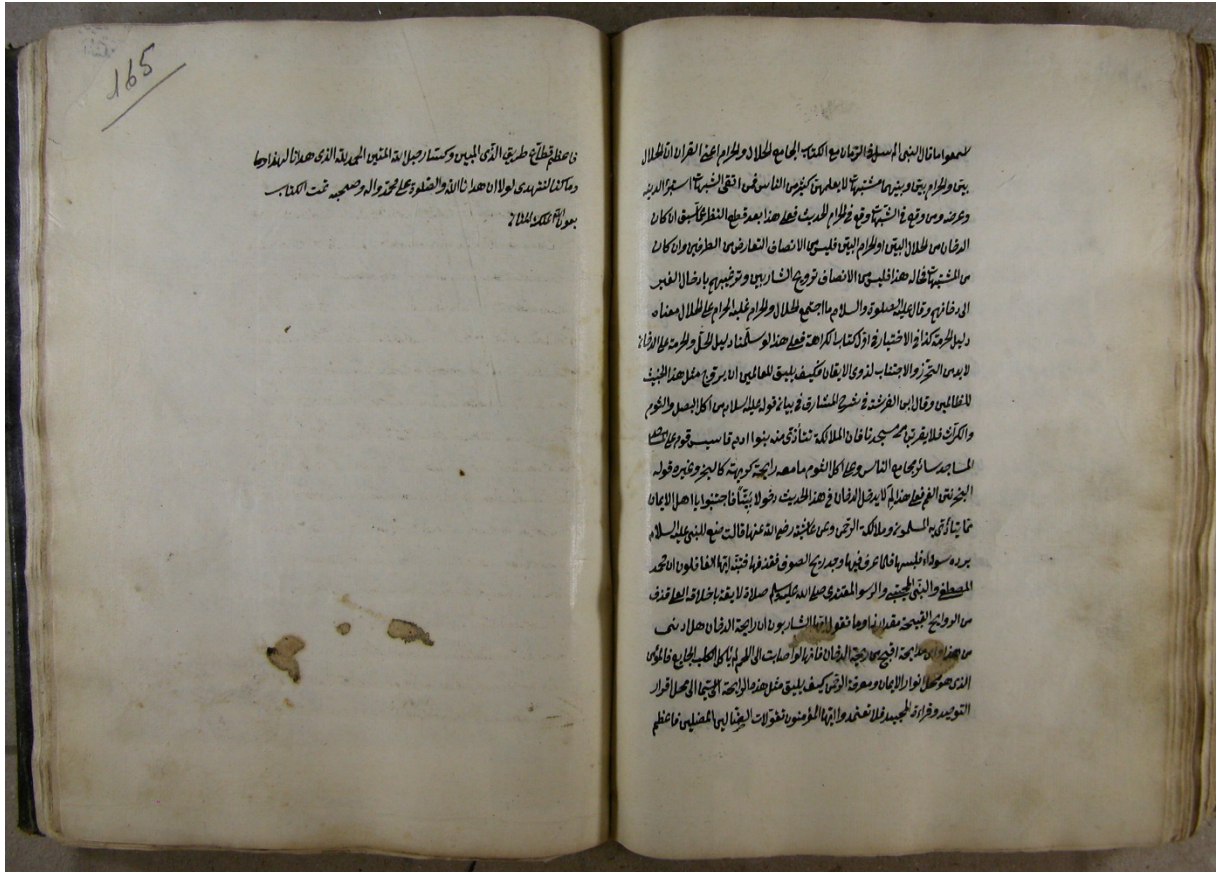 لاسمعوا ما قال النبى المرسل فى الزمان مع الكتاب الجامع للحلال والحرام اعنى القرآن ان الحلال
بين والحرام بين وبينهما مشتبهات لا يعلمهن كثير من الناس فمن اتقى الشبهات استبرأ لدينه
وعرضه ومن وقع فى الشبهات وقع فى الحرام الحديث فعلى هذا بعد قطع النظر عما سبق ان كان
الدخان من الحلال البين او الحرام البين فليس من الانصاف التعارض من الطرفين وان كان
من المشتبهات فحاله هذا فليس من الانصاف ترويج الشاربين وترغيبهم بادخال الغير
الى دخانهم وقال عليه الصلوة والسلام ما اجتمع الحلال والحرام غلب الحرام على الحلال معناه
دليل الحرمة كذا فى الاختيار فى اول كتاب الكراهة فعلى هذا لو سلمنا دليل الحل والحرمة على الدخان
لابد من التحرز والاجتناب لذوى الايقان فكيف يليق للعالمين ان يروج مثل هذا الخبيث
للظالمين وقال ابن الفرشته فى شرح المشارق فى بيان قوله عليه السلام من اكل البصل والثوم
والكراث فلا يقربن مسجدنا فان الملائكة تتأذى منه بنوا ادم قاس قوم على
المساجد سائر مجامع الناس وعلى اكل الثوم ما معه رايحة كريهة كالبخر وغيره قوله
البخر نتن الفم فعلى هذا لم لا يدخل الدخان فى هذا الحديث دخولا بيّنا فاجتنبوا يا اهل الايمان
مما يتأذى به المسلمون وملائكة الرحمن وعن عائشة رضى الله عنها قالت صنع للنبى عليه السلام
برده سوداء فلبسها فلما عرق فيها وجد ريح الصوف فقذفها فتنبه ايها الغافلون ان محمد
المصطفى والنبى المجتبى والرسول المقتدى صلى الله عليه وسلم صلاة لايقة باخلاقه العلى قذف
من الروايح القبيحة مقدار وما تقول ايها الشاربون ان رايحة الدخان هل ادنى
من هذا واى رايحة اقبح من ريحة الدخان فانها لو اصابت الى اللحم لم ياكل الكلب الجايع فالمؤمن
الذى هو محل انوار الايمان ومعرفة الرحمن كيف يليق مثل هذه الرايحة الى محل اقرار
التوحيد وقراءة المجيد فلا تعتمدوا ايها المؤمنون تقولات الضالين المضلين فاعظم
165
فاعظم قطاع طريق الدين المبين وكسار حبل الله المتين الحمد لله الذى هدانا لهذا وما
وما كنا لنهتدى لولا ان هدانا الله والصلوة على محمد واله وصحبه تمت الكتاب
بعون الله الملك المنان